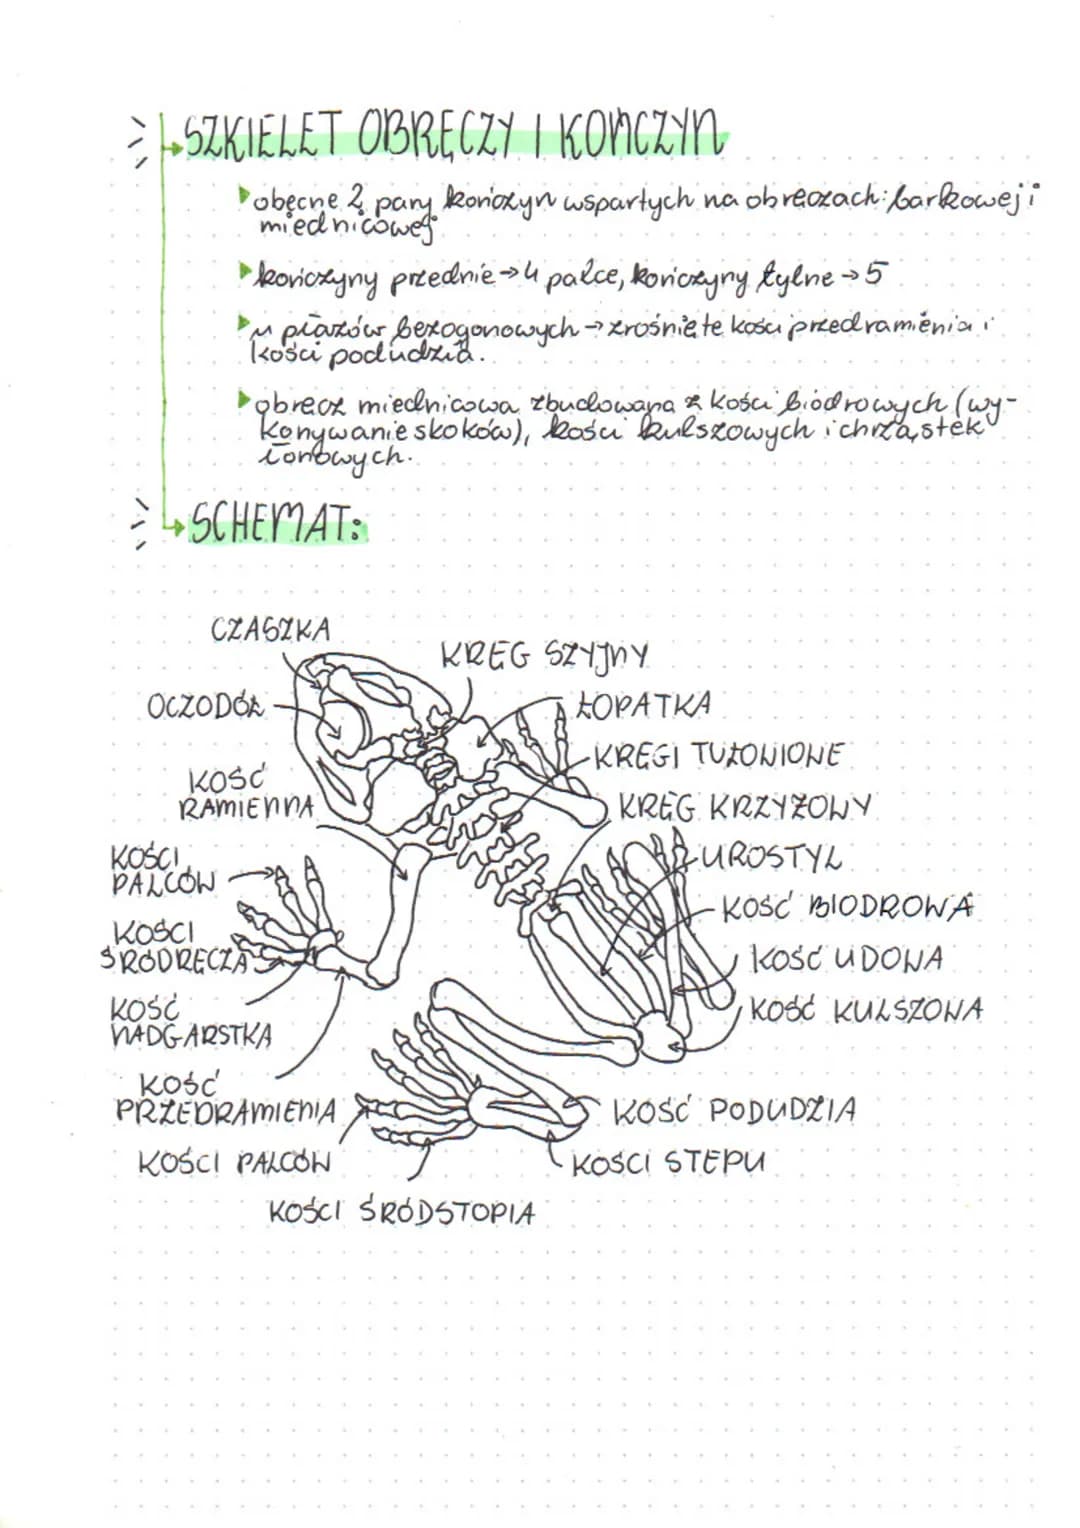 SZKIELET OBRĘCZY I KOŃCZYN
obecne 2 pary kończyn wspartych na obręczach: barkowej i
miednicowej
kończyny przednie → 4 palce, kończyny tylne → 5
u płazów bezogonowych → zrośnięte kości przedramienia i
kości podudzia.
obręcz miednicowa zbudowana z kości biodrowych (wy-
konywanie skoków), kości kulszowych i chrząstek
łonowych.
SCHEMAT:
CZASZKA
KRĘG SZYJNY
OCZODÓŁ
ŁOPATKA
KRĘGI TUŁOWIOWE
KOŚĆ
RAMIENNA
KRĘG KRZYŻOWY
KOŚCI
PALCÓW
UROSTYL
KOŚĆ BIODROWA
KOŚCI
ŚRÓDRĘCZA
KOŚĆ UDOWA
KOŚĆ
NADGARSTKA
KOŚĆ KULSZOWA
KOŚĆ
PRZEDRAMIENIA
KOŚĆ PODUDZIA
KOŚCI PALCÓW
KOŚCI STĘPU
KOŚCI ŚRÓDSTOPIA